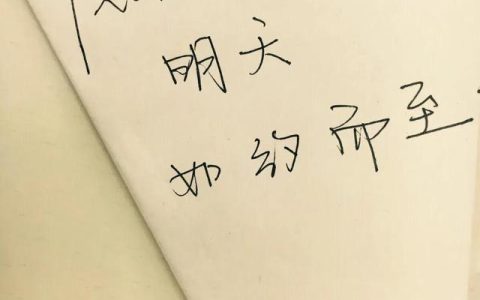 明天
如约而至